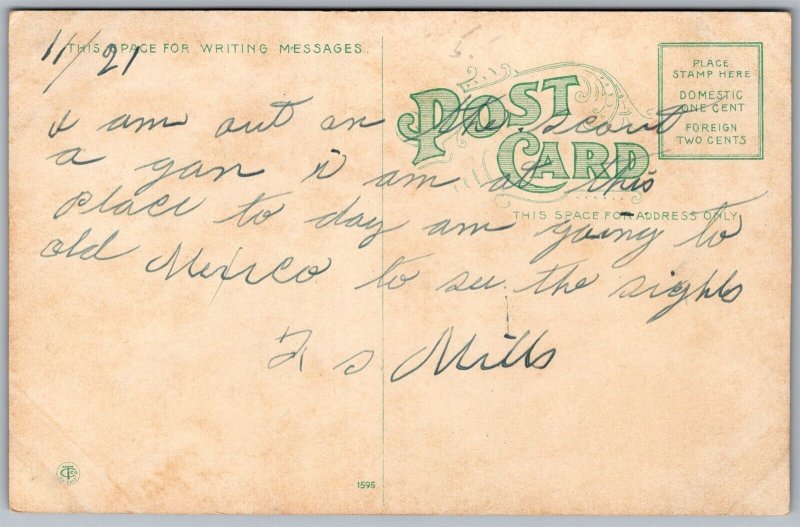 11/21
THIS SPACE FOR WRITING MESSAGES.
POST CARD
PLACE
STAMP HERE
DOMESTIC
ONE CENT
FOREIGN
TWO CENTS
THIS SPACE FOR ADDRESS ONLY.
I am out on the scout
a gan i am at this
Place to day am going to
old Mexico to see the sights
F S Mills
1595